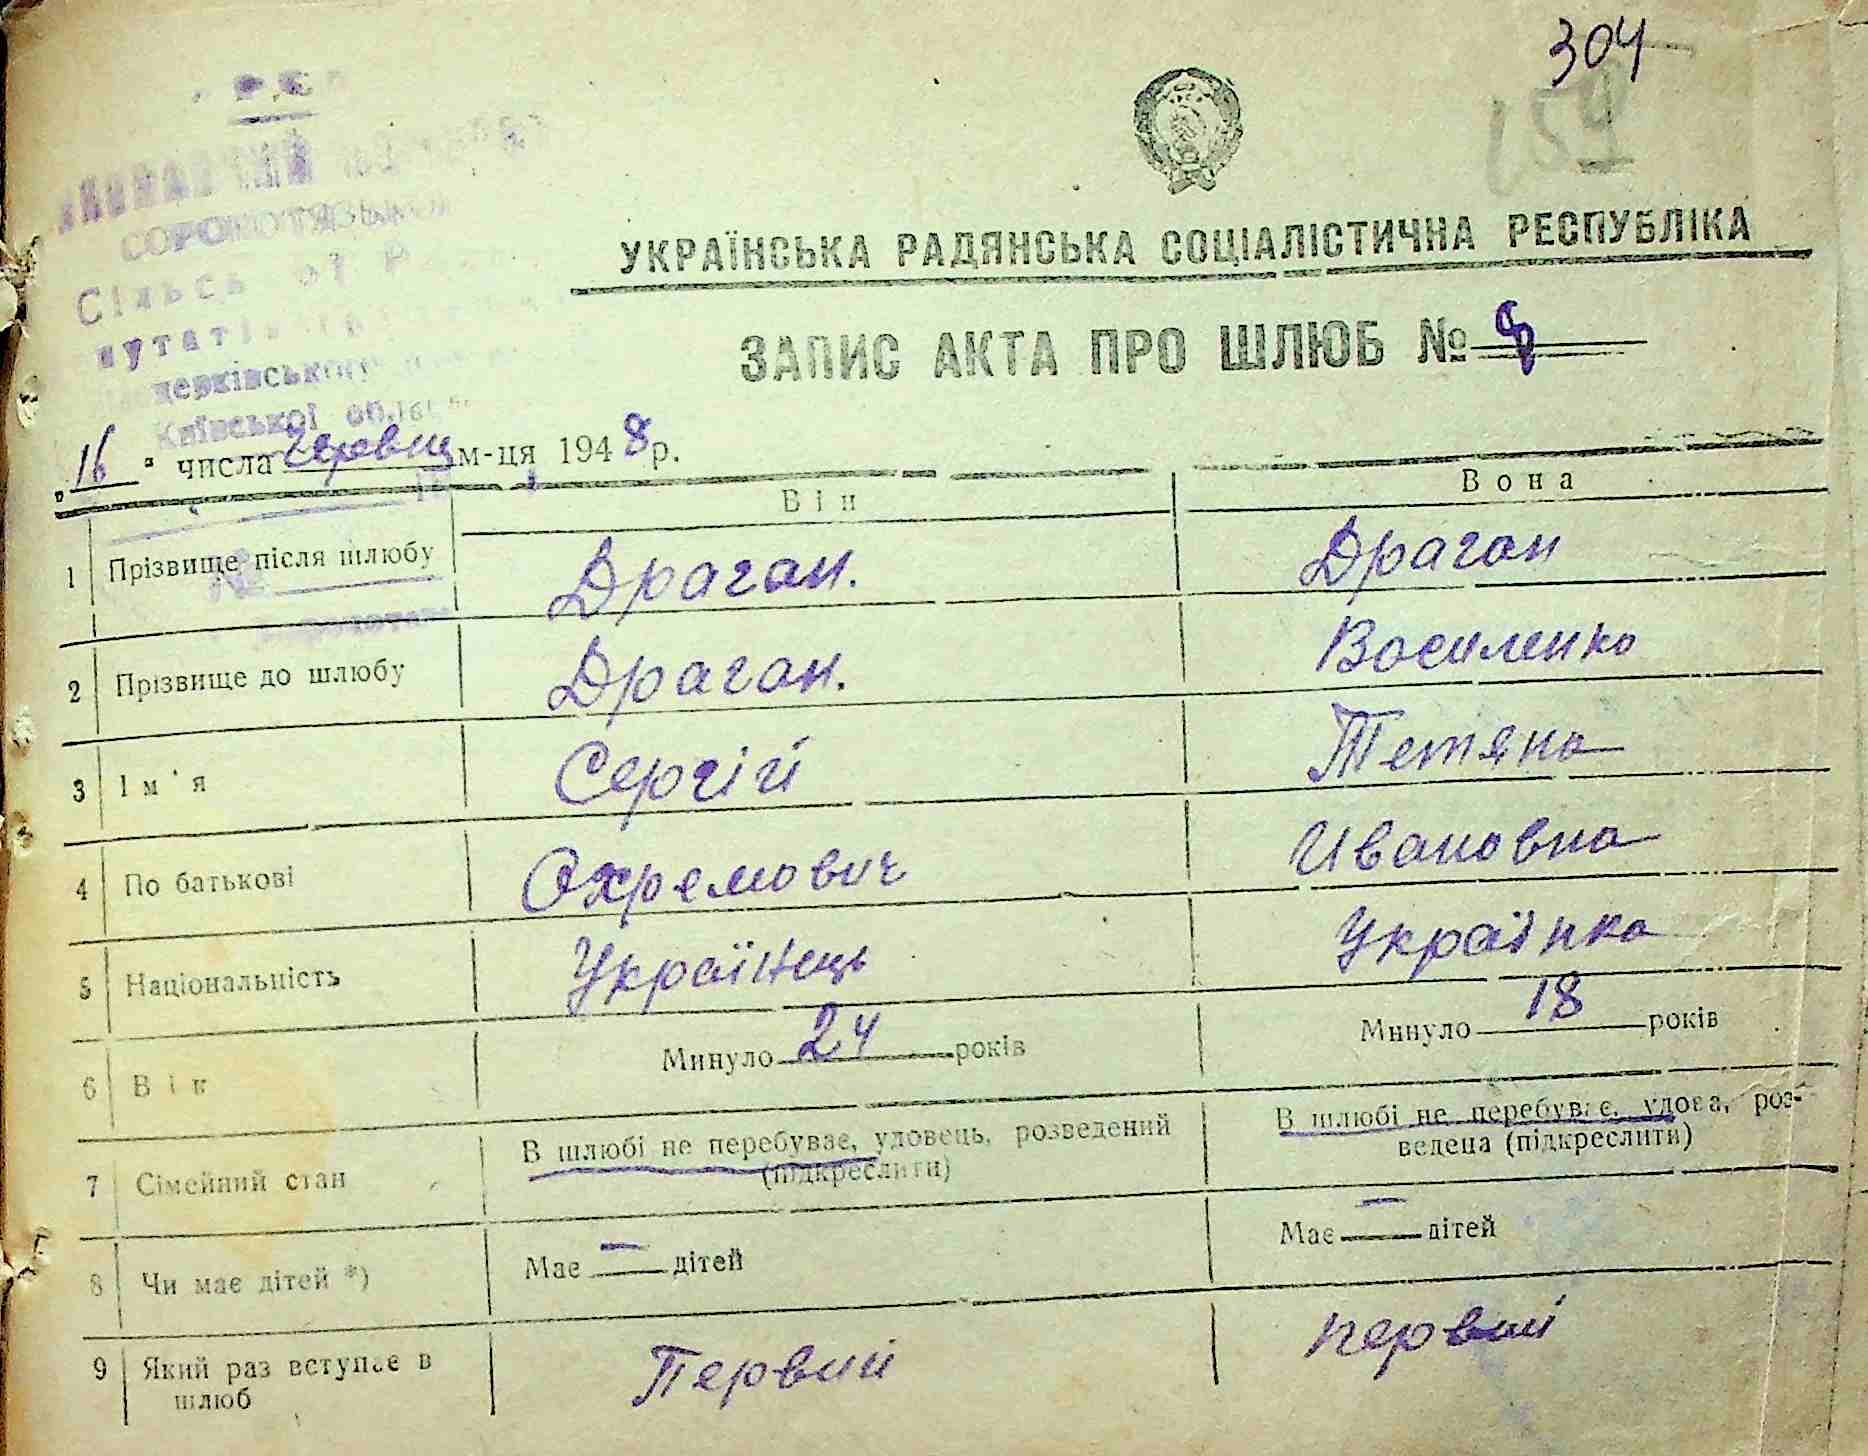 304
УКРАЇНСЬКА РАДЯНСЬКА СОЦІАЛІСТИЧНА РЕСПУБЛІКА
ЗАПИС АКТА ПРО ШЛЮБ № 8
Київської
„16" числа м-ця 1948 р.
Він Вона
1 Прізвище після шлюбу Драган. Драган
2 Прізвище до шлюбу Драган. Василенко
3 Ім'я Сергій Тетяна
4 По батькові Охремович Ивановна
5 Національність Українець Українка
6 Вік Минуло 24 років Минуло 18 років
7 Сімейний стан В шлюбі не перебуває, удовець, розведений (підкреслити) В шлюбі не перебуває, удова, розведена (підкреслити)
8 Чи має дітей *) Має — дітей Має — дітей
9 Який раз вступає в шлюб Первий первий